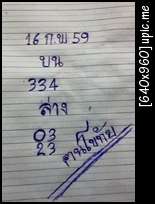 16 ก.พ 59
บน
334
ล่าง
03
23
คนโขทัย
[640x960] upic.me